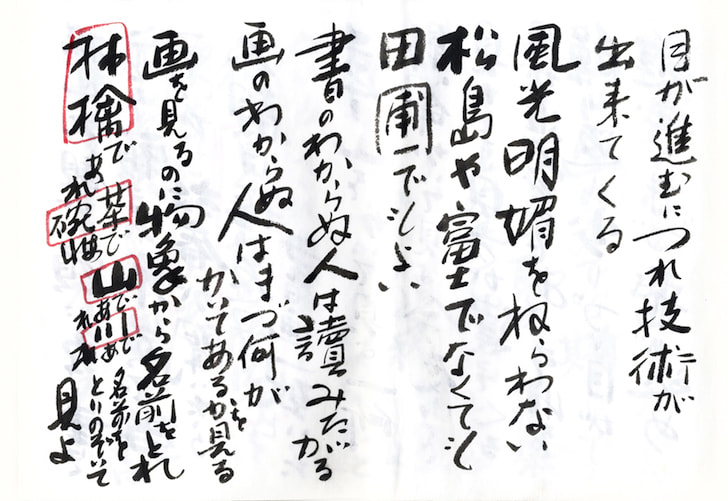 目が進むにつれ技術が
出来てくる
風光明媚をねらわない
松島や富士でなくても
田圃でもよい
書のわからぬ人は讀みたがる
画のわからぬ人はまづ何が
かいてあるかを見る
画を見るのに物象から名前をとれ
林檎であれ茶碗であれ山であれ川であれ名前をとりのぞいて
見よ